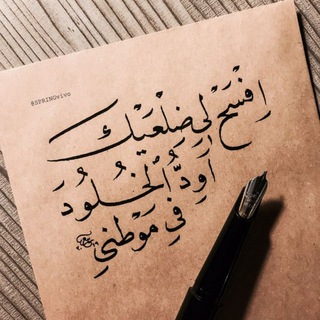 @SPRINGvivo
اِفْسَحْ لِي ضِلْعَيْكَ
أَوِدُّ الْخُلُودَ
فِي مَوْطِنِي